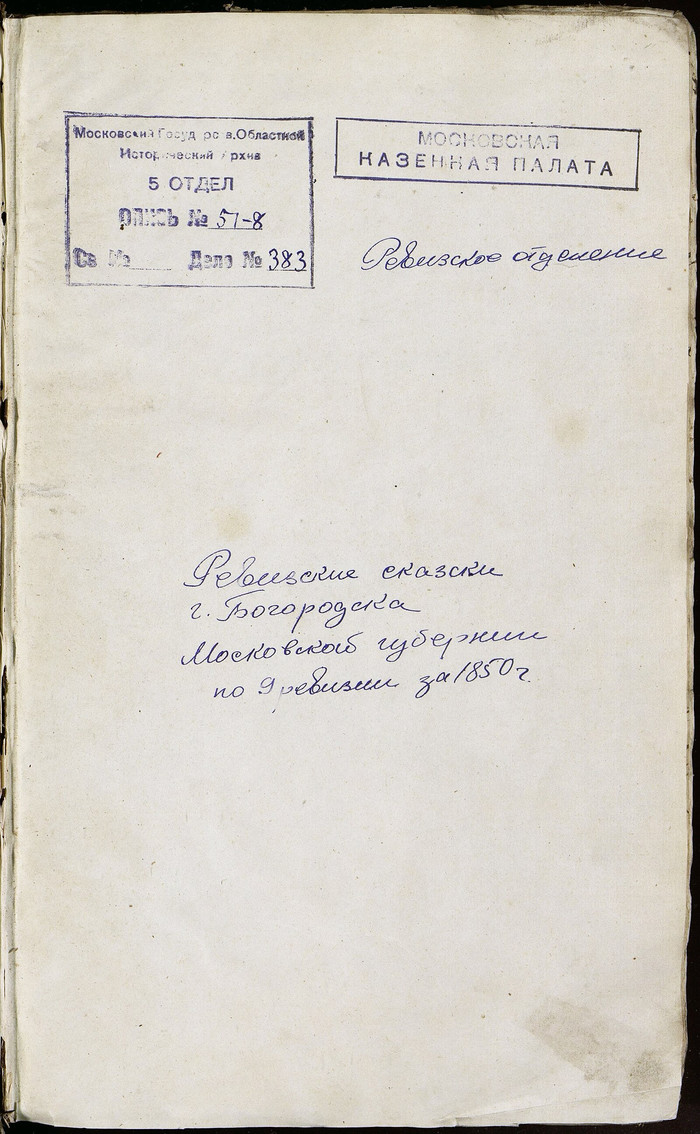 Московский Государств. Областной
Исторический Архив
5 ОТДЕЛ
ОПИСЬ № 51-8
Св №____ Дело № 383
МОСКОВСКАЯ
КАЗЕННАЯ ПАЛАТА
Ревизское отделение
Ревизские сказски
г. Богородска
Московской губернии
по 9 ревизии за 1850 г.